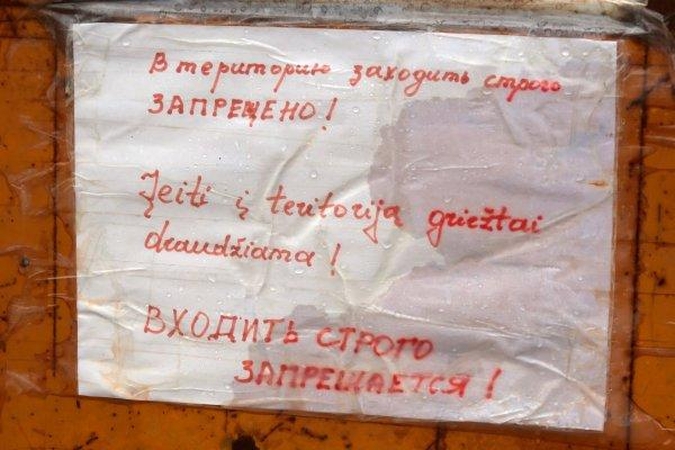 В територию заходить строго
ЗАПРЕЩЕНО!
Įeiti į teritoriją griežtai
draudžiama!
ВХОДИТЬ СТРОГО
ЗАПРЕЩАЕТСЯ!